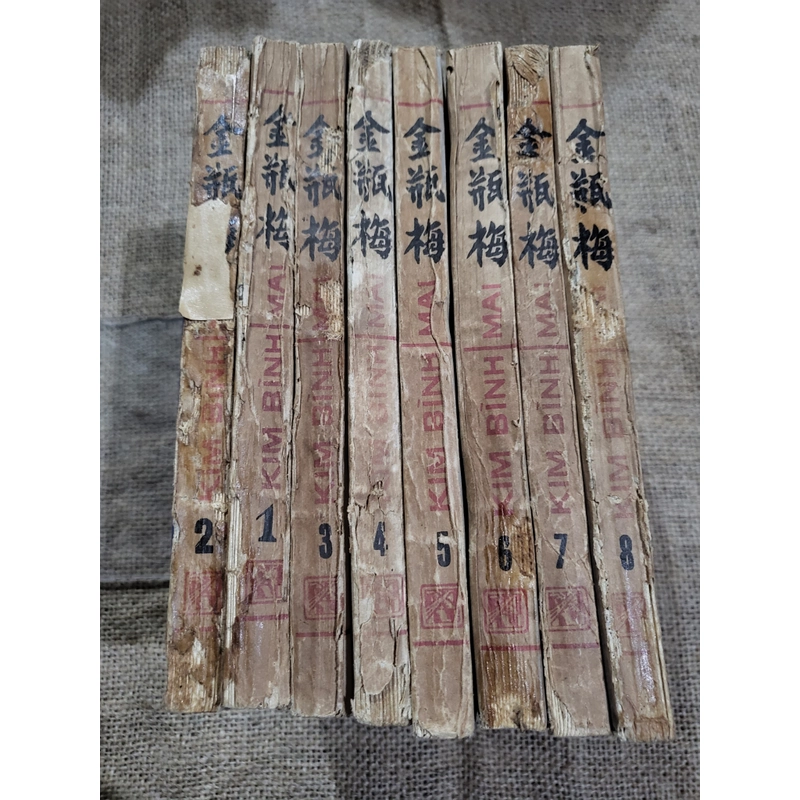 金瓶
KIM BÌNH
2
金瓶梅
KIM BÌNH MAI
1
金瓶梅
KIM BÌNH MAI
3
金瓶梅
BÌNH MAI
4
金瓶梅
KIM BÌNH MAI
5
金瓶梅
KIM BÌNH MAI
6
金瓶梅
KIM BÌNH MAI
7
金瓶梅
KIM BÌNH
8